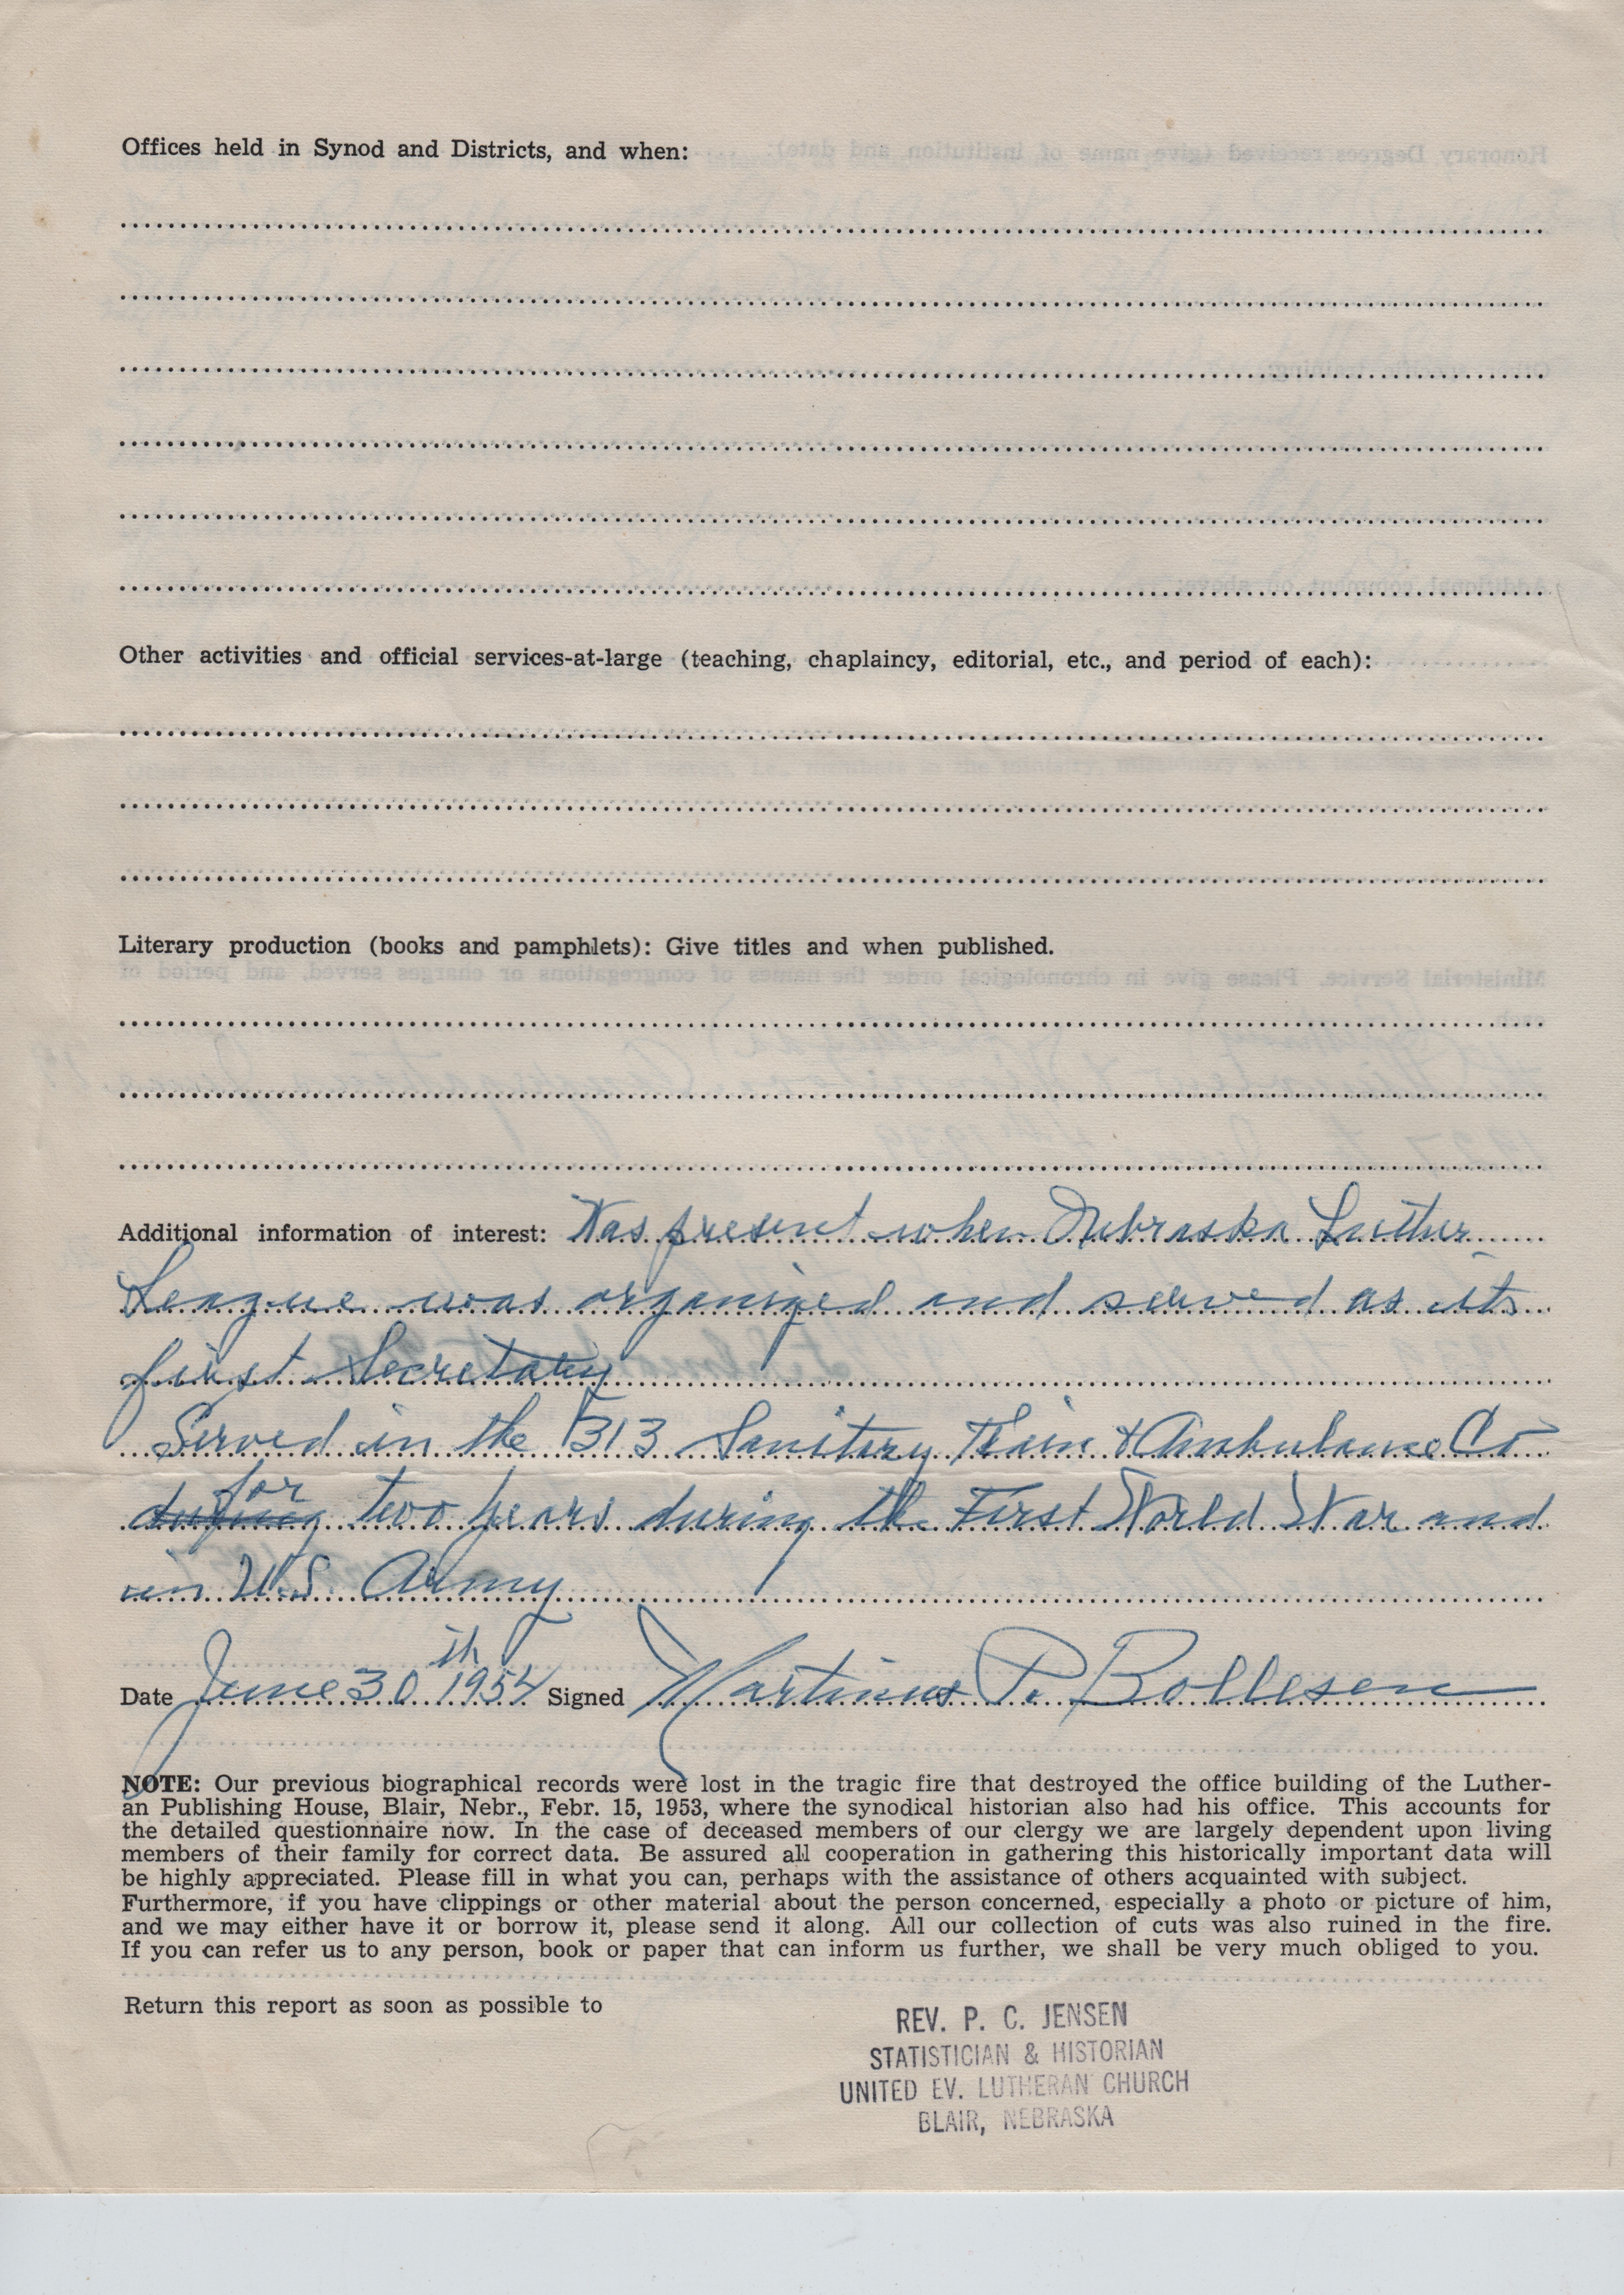 Offices held in Synod and Districts, and when:
Other activities and official services-at-large (teaching, chaplaincy, editorial, etc., and period of each):
Literary production (books and pamphlets): Give titles and when published.
Additional information of interest: Was present when Nebraska Luther
League was organized and served as its
first Secretary
Served in the 313 Sanitary Train & Ambulance Co
for
during two years during the First World War and
in U.S. Army
Date June 30th 1954 Signed Martinus P. Bollesen
NOTE: Our previous biographical records were lost in the tragic fire that destroyed the office building of the Luther-
an Publishing House, Blair, Nebr., Febr. 15, 1953, where the synodical historian also had his office. This accounts for
the detailed questionnaire now. In the case of deceased members of our clergy we are largely dependent upon living
members of their family for correct data. Be assured all cooperation in gathering this historically important data will
be highly appreciated. Please fill in what you can, perhaps with the assistance of others acquainted with subject.
Furthermore, if you have clippings or other material about the person concerned, especially a photo or picture of him,
and we may either have it or borrow it, please send it along. All our collection of cuts was also ruined in the fire.
If you can refer us to any person, book or paper that can inform us further, we shall be very much obliged to you.
Return this report as soon as possible to
REV. P. C. JENSEN
STATISTICIAN & HISTORIAN
UNITED EV. LUTHERAN CHURCH
BLAIR, NEBRASKA